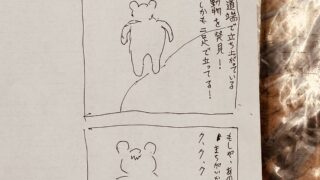 道端で立ち上がっている
動物を発見!
しかも二足で立ってる!
もしや、あの
まちがいか
ク、ク、ク